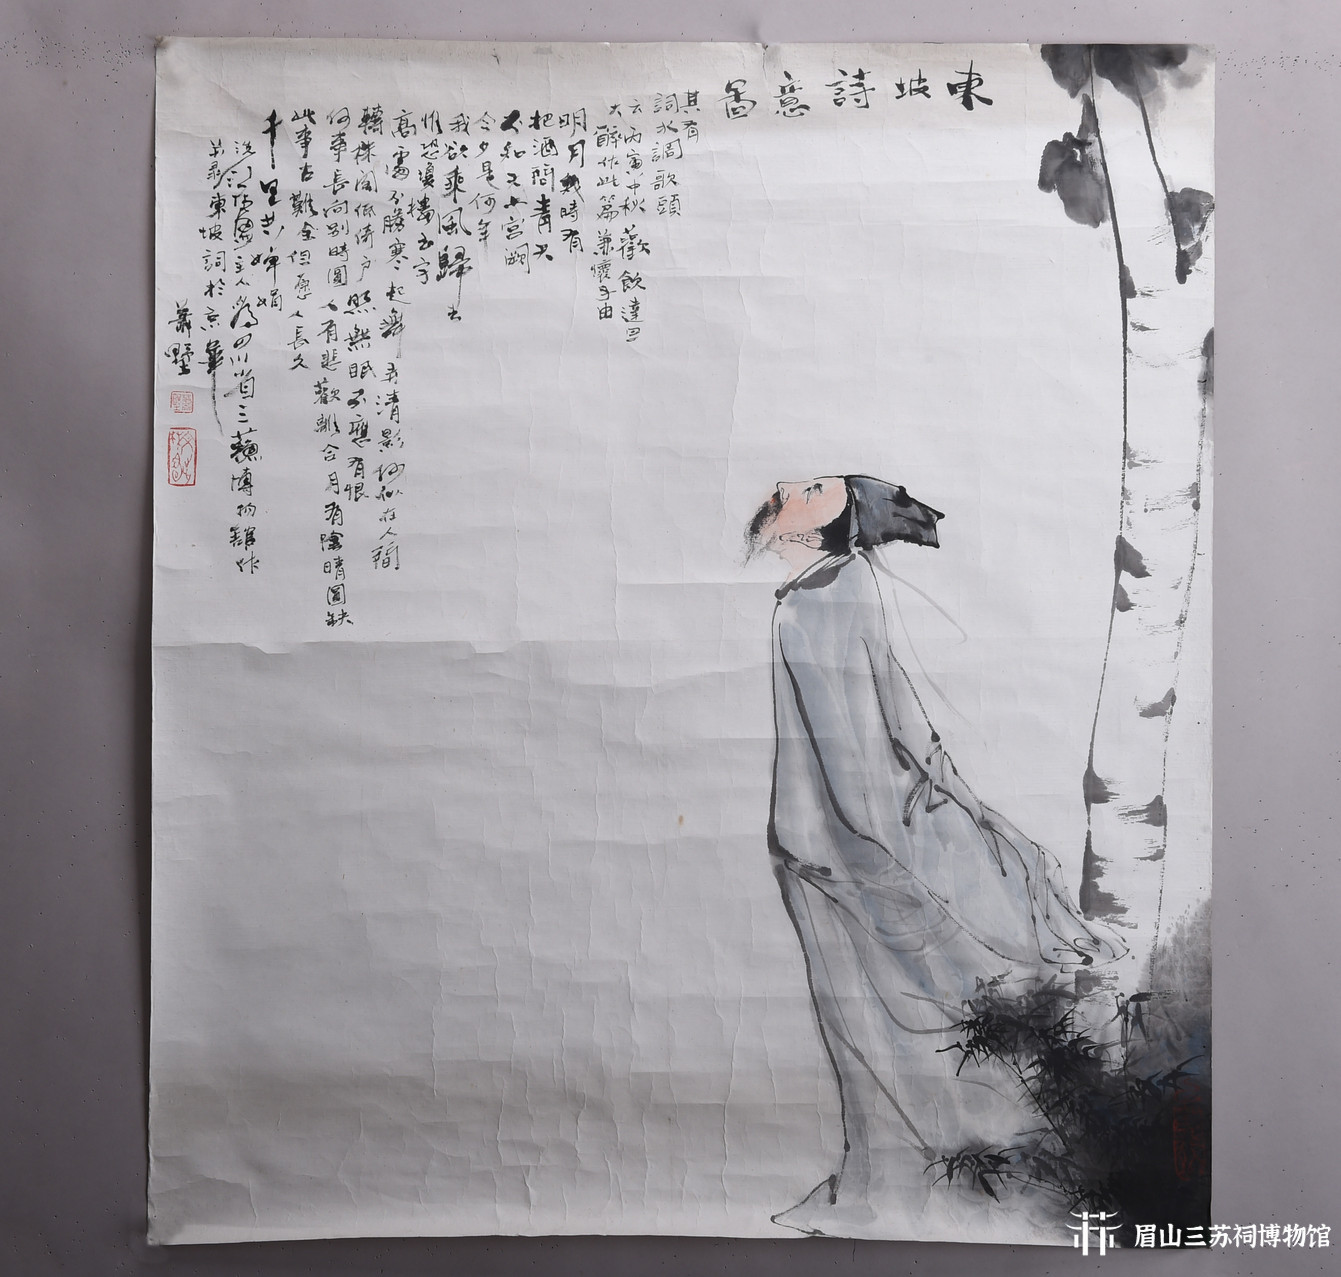 東坡詩意圖
其有
詞水調歌頭
云丙寅中秋歡飲達旦
大醉作此篇兼懷子由
明月幾時有
把酒問青天
不知天上宮闕
今夕是何年
我欲乘風歸去
惟恐瓊樓玉宇
高處不勝寒起舞弄清影何似在人間
轉朱閣低倚户照無眠不應有恨
何事長向别時圓人有悲歡離合月有陰晴圓缺
此事古難全但愿人長久
千里共嬋娟
主人為四川省三蘇博物館作
并录東坡詞於京華
蕭墅
眉山三苏祠博物馆